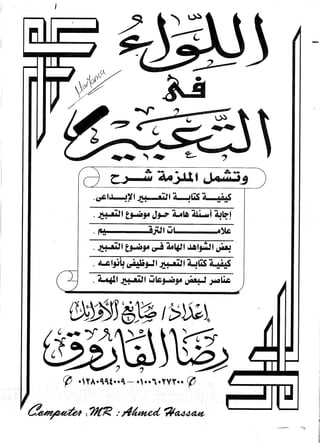 اللواء
Maryana
فى
التعبير
وتشمل الملزمة شرح
كيفية كتابة التعبير الإبداعى.
إجابة أسئلة هامة حول موضوع التعبير.
علامات الترقيم.
بعض الشواهد الهامة فى موضوع التعبير.
كيفية كتابة التعبير الوظيفى بأنواعه.
عناصر لبعض موضوعات التعبير المهمة.
إعداد/ صانع الأوائل
رضا الفاروق
٠١٢٨٠٩٩٤٠٠٩ - ٠١٠٠٦٠٢٧٣٠٠
Computer MR : Ahmed Hassan